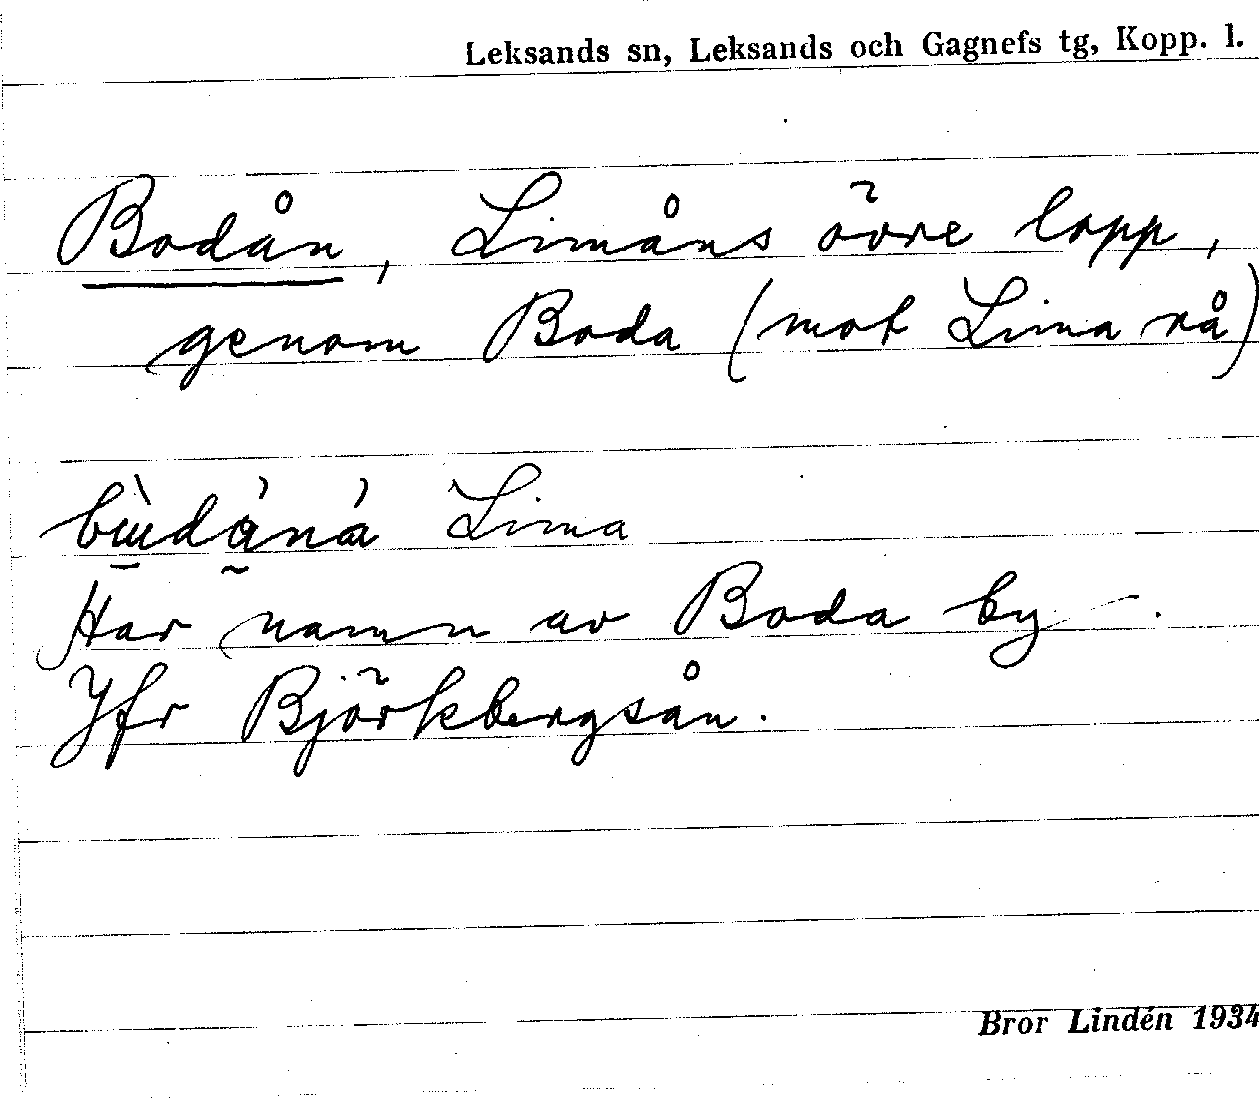 Leksands sn, Leksands och Gagnefs tg, Kopp. l.
Bodån, Limåns övre lopp,
genom Boda (mot Lima rå)
Lima
Har namn av Boda by –.
Jfr Björkbergsån.
Bror Lindén 1934